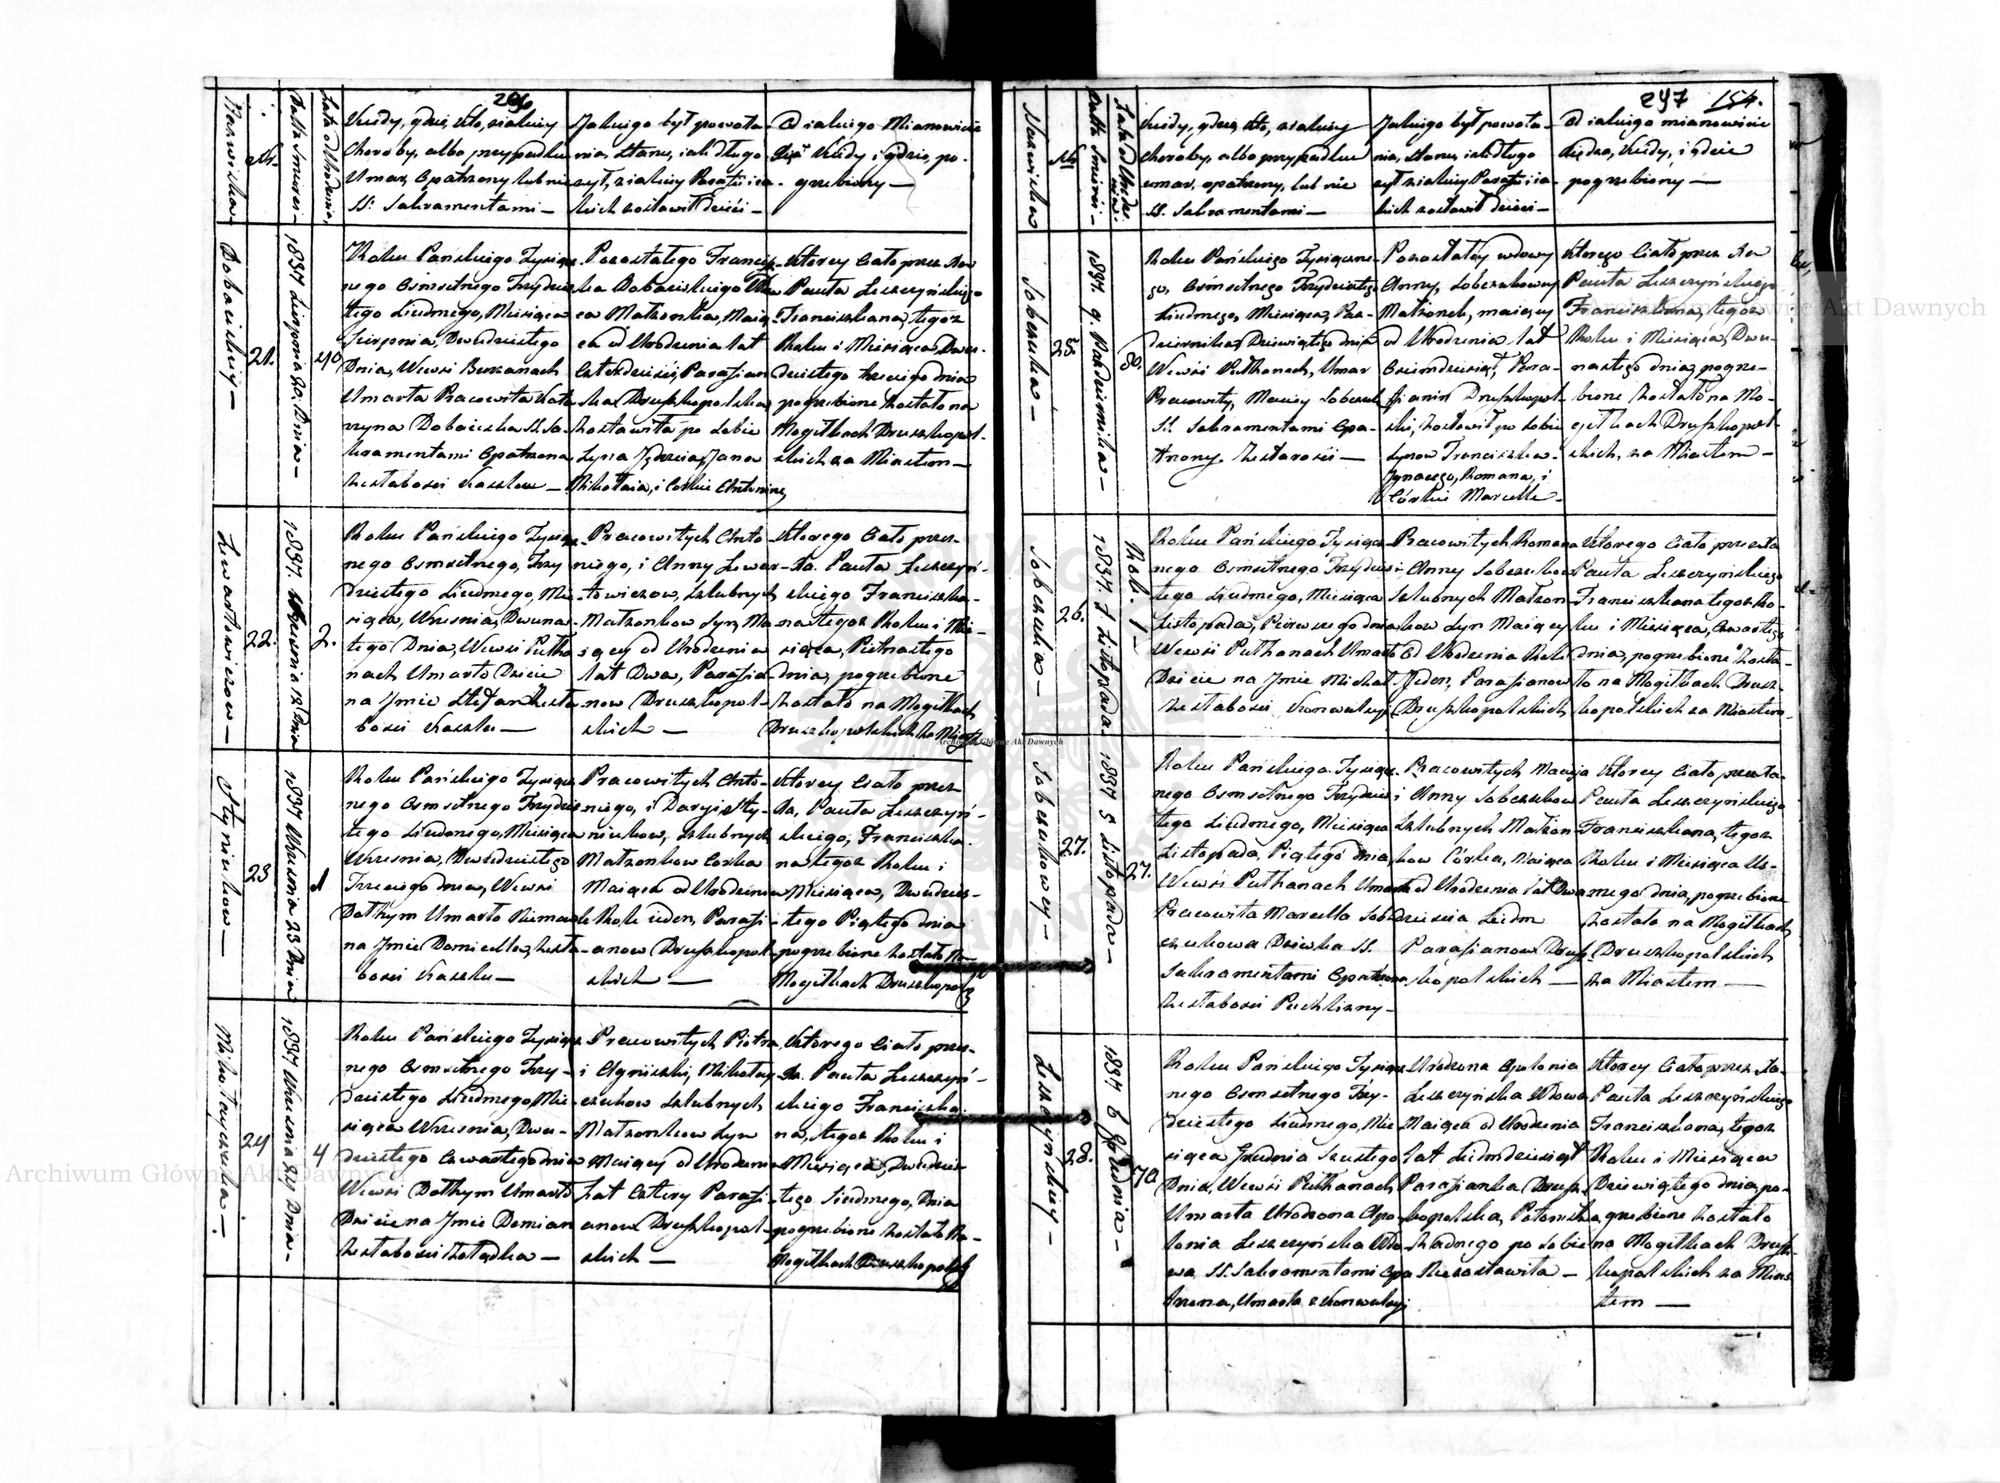 296
Nazwiska
Nr.
Datta Smierci
Lata od Urodzenia
Kiedy, gdzie, kto, z jakiey
Choroby, albo przypadku
Umar, Opatrzony lub nie
SS. Sakramentami —
Jakiego był powoła-
nia, Stanu, jak długo
żył, z jakiey Parafii, ja-
kich zostawił dzieci —
Od jakiego Mianowicie
Kiedy i gdzie, po-
grzebiony —
Dobaiskiey —
21.
1837 Sierpnia 20. Dnia —
40
Roku Panskiego Tysiącz-
nego Osmsetnego Trzydzies
tego Siudmego, Miesiąca
Sierpnia, Dwudziestego
Dnia, Wewsi Borzanach
Umarła Pracowita Kata
rzyna Dobaiska SS. Sa-
kramentami Opatrzona
Zesłabosci Kaszlu —
Pozostałego Francisz-
ka Dobaiskiego
ca Małzonka, Maią-
ca od Urodzenia lat
Czterdzieści, Parafian
ka Druzkopolska
Zostawiła po sobie
Syna Jędrzeia, Jana
Mikołaia, i Corkie Antonine,
Ktorey Ciało przez Xa
Pawła Leszczyńskiego
Franciszkana, tegoz
Roku i Miesiąca, Dwu-
dziestego trzeciego dnia
pogrzebione Zostało na
Mogiłkach Druszkopol-
skich za Miastem —
Lewartowiczow —
22.
1837. Wrzesnia 12 Dnia
2.
Roku Pańskiego Tysiącz-
nego Osmsetnego, Trzy
Dziestego Siudmego, Mie
siąca, Wrzesnia, Dwuna-
tego Dnia, Wewsi Pułha
nach Umarło Dziecie
na Jmie Stefan Zesła
bosci Kaszlu —
Pracowitych Anto
niego, i Anny Lewar-
towiczow, Szlubnych
Małzonkow Syn, Ma
iącey od Urodzenia
lat Dwa, Parafia-
now Druszkopol-
skich —
Ktorego Ciało przez
Xa. Pawła Leszczyń-
skiego Franciszka-
na tegoz Roku i Mie-
siąca, Pietnastego
dnia, pogrzebione
Zostało na Mogiłkach
Druszkopolskich za Miast
Hyniukow —
23
1837 Wrzesnia 23 Dnia
1
Roku Pańskiego Tysiącz
nego Osmsetnego Trzydzies
tego Siudmego, Miesiąca
Wrzesnia, Dwudziestego
Trzeciego dnia, Wewsi
Dołhym Umarło Niemowle
na Jmie Domicella, Zesła
bosci Kaszlu —
Pracowitych Anto-
niego, i Daryi Hy-
niukow, Szlubnych
Małzonkow Corka
Maiąca od Urodzenia
Rok ieden, Parafi-
anow Druszkopol-
skich —
Ktorey Ciało przez
Xa. Pawła Leszczyń-
skiego, Franciszka-
na tegoz Roku i
Miesiąca, Dwudzies-
tego Piątego dnia
pogrzebione zostało Na
Mogiłkach Druszkopols
Mikołayczuka —
24
1837 Wrzesnia 24 Dnia —
4
Roku Pańskiego Tysiącz
nego Osmsetnego Trzy-
Dziestego Siudmego, Mie-
siąca Wrzesnia, Dwu-
dziestego Czwartego dnia
Wewsi Dołhym Umarło
Dziecie na Jmie Demian
Zesłabosci Zołądka —
Pracowitych Piotra
i Agnieszki, Mikołay
czukow Szlubnych
Małzonkow Syn
Maiący od Urodzenia
Lat Cztery Parafi
anow Druszkopol-
skich —
Ktorego Ciało przez
Xa. Pawła Leszczyń-
skiego Franciszka-
na, tegoz Roku i
Miesiąca, Dwudzies-
tego Siudmego, Dnia
pogrzebione Zostało Na-
Mogiłkach Druszkopols
297 154.
Nazwiskow
Nr
Datta Smierci —
Kiedy, gdzie, kto, z jakiey
Choroby, albo przypadku
umar, opatrzony, lub nie
SS. Sakramentami —
Jakiego był powoła-
nia, Stanu, jak długo
żył z jakiey Parafii, ja-
kich zostawił dzieci —
Od jakiego mianowicie
Xiędza, Kiedy, i gdzie
pogrzebiony —
Sobczuka —
25.
1837. 9. Pazdziernika —
80.
Roku Pańskiego Tysiączne-
go, Osmsetnego Trzydziestego
Siudmego, Miesiąca, Paz-
dziernika, Dziewiątego dnia
Wewsi Pułhanach, Umar
Pracowity, Maciey Sobczuk
SS. Sakramentami Opa-
trzony. Zestarosci —
Pozostałey wdowy
Anny, Sobczukowey
Małzonek, maiący
od Urodzenia lat
Osimdziesiąt, Para-
fianin Druszkopol-
ski, Zostawił po sobie
Synow Franciszka
Jgnacego, Romana, i
Córkie Marcelle —
Ktorego Ciało przez Xa
Pawła Leszczyńskiego
Franciszkana, tegoz
Roku i Miesiąca, Dwu-
nastego dnia, pogrze-
bione Zostało na Mo-
giłkach Druszkopol-
skich, za Miastem —
Sobczuka —
26.
1837. 1 Listopada
Rok. 1
Roku Pańskiego Tysiącz-
nego Osmsetnego Trzydzies
tego Siudmego, Miesiąca
Listopada, Pierwszego dnia
Wewsi Pułhanach Umarło
Dziecie na Jmie Michał
Zesłabosci Konwulsyi
Pracowitych Romana
i Anny Sobczukow
Szlubnych Małzon-
kow Syn Maiący
Od Urodzenia Rok
Jeden, Parafianow
Druszkopolskich
Ktorego Ciało przez Xa
Pawła Leszczyńskiego
Franciszkana tegoz Ro-
ku i Miesiąca, Czwartego
dnia, pogrzebione Zosta-
ło na Mogiłkach Drusz-
kopolskich za Miastem —
Sobczukowey —
27.
1837 5 Listopada —
27.
Roku Pańskiego Tysiącz-
nego Osmsetnego Trzydzies
tego Siudmego, Miesiąca
Listopada, Piątego dnia,
Wewsi Pułhanach Umarła
Pracowita Marcella Sob
czukowa Dziewka SS.
Sakramentami Opatrzona
Zesłabosci Puchliany —
Pracowitych Macieja
i Anny Sobczukow
Szlubnych Małzon
kow Córka, Maiąca
od Urodzenia Lat Dwa
dziescia Siedm
Parafianow Drusz-
kopolskich —
Ktorey Ciało przez Xa.
Pawła Leszczyńskiego
Franciszkana, tegoz
Roku i Miesiąca Us-
mego dnia, pogrzebione
Zostało na Mogiłkach
Druszkopolskich
za Miastem —
Leszczynskiey —
28.
1837 6 Grudnia —
70
Roku Pańskiego Tysiącz
nego Osmsetnego Trzy-
dziestego Siudmego, Mie
siąca Grudnia Szustego
Dnia, Wewsi Pułhanach
Umarła Urodzona Apo-
lonia Leszczyńska Wdo-
wa SS. Sakramentami Opa
trzona, Umarła z Konwulsyi
Urodzona Apolonia
Leszczyńska Wdowa
Maiąca od Urodzenia
Lat Siedmdziesiąt
Parafianka Drusz-
kopolska, Potomstwa
Żadnego po sobie
Niezostawiła —
Ktorey Ciało przez Xa-
Pawła Leszczyńskiego
Franciszkana, tegoz
Roku i Miesiąca
Dziewiątego dnia, po-
grzebione Zostało
na Mogiłkach Drusz-
kopolskich za Mias
tem —
Archiwum Główne Akt Dawnych
Archiwum Główne Akt Dawnych
Archiwum Główne Akt Dawnych